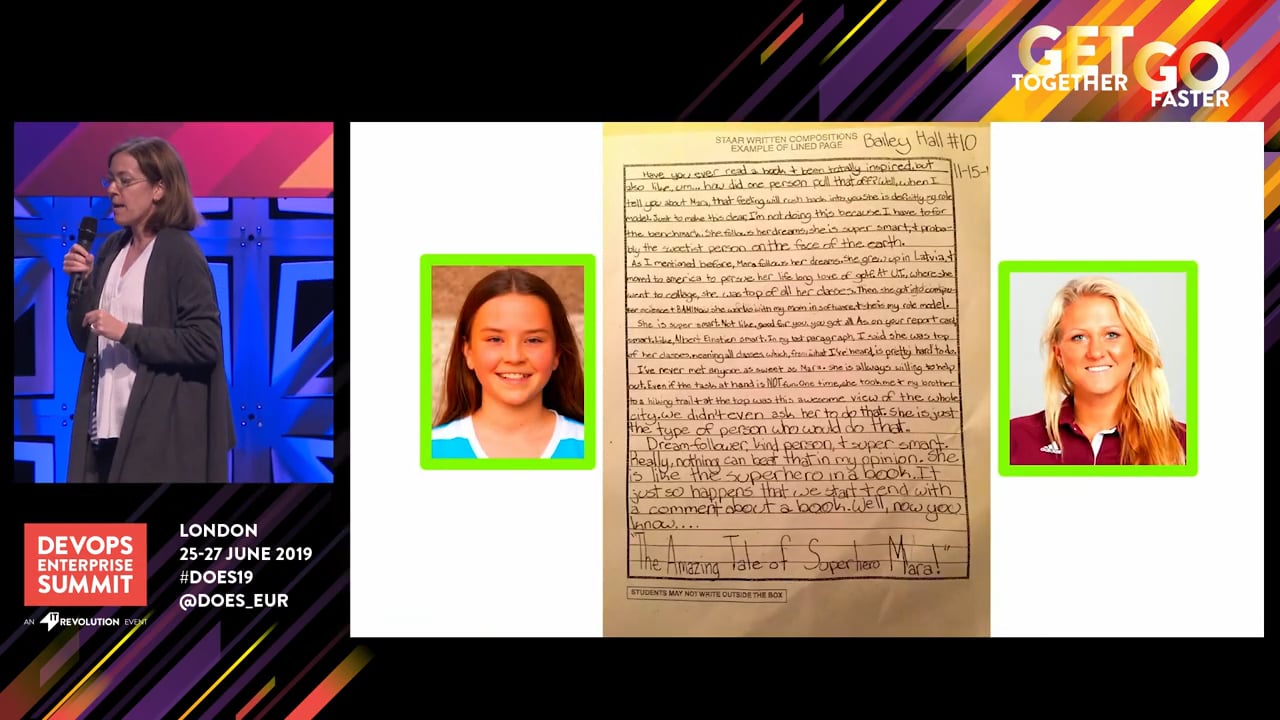 GET
TOGETHER
GO
FASTER
STAAR WRITTEN COMPOSITIONS
EXAMPLE OF LINED PAGE
Bailey Hall #10
11-15-1
Have you ever read a book + been totally inspired, but
also like, um... how did one person pull that off? Well, when I
tell you about Mara, that feeling will rush back into you. She is definitly my role
model. Just to make this clear, I'm not doing this because I have to for
the benchmark. She follows her dreams, she is super smart, + proba-
bly the sweetist person on the face of the earth.
As I mentioned before, Mara follows her dreams. She grew up in Latvia, +
moved to america to persve her life long love of golf. At UT, where she
went to college, she was top of all her classes. Then she got into compu-
ter science + BAM! Now she works with my mom in software, + she is my role model.
She is super smart. Not like, good for you, you got all As on your report card
smart. Like, Albert Einstien smart. In my last paragraph, I said she was top
of her classes, meaning all classes which, from what I've heard, is pretty hard to do.
I've never met anyone as sweet as Mara. She is allways willing to help
out. Even if the task at hand is NOT fun. One time, she took me + my brother
to a hiking trail + at the top was this awesome view of the whole
city. We didn't even ask her to do that. She is just
the type of person who would do that.
Dream-follower, kind person, + super smart.
Really, nothing can beat that in my opinion. She
is like the superhero in a book. It
just so happens that we start + end with
a comment about a book. Well, now you
know....
"The Amazing Tale of Superhero Mara!"
STUDENTS MAY NOT WRITE OUTSIDE THE BOX
DEVOPS
ENTERPRISE
SUMMIT
AN IT REVOLUTION EVENT
LONDON
25-27 JUNE 2019
#DOES19
@DOES_EUR